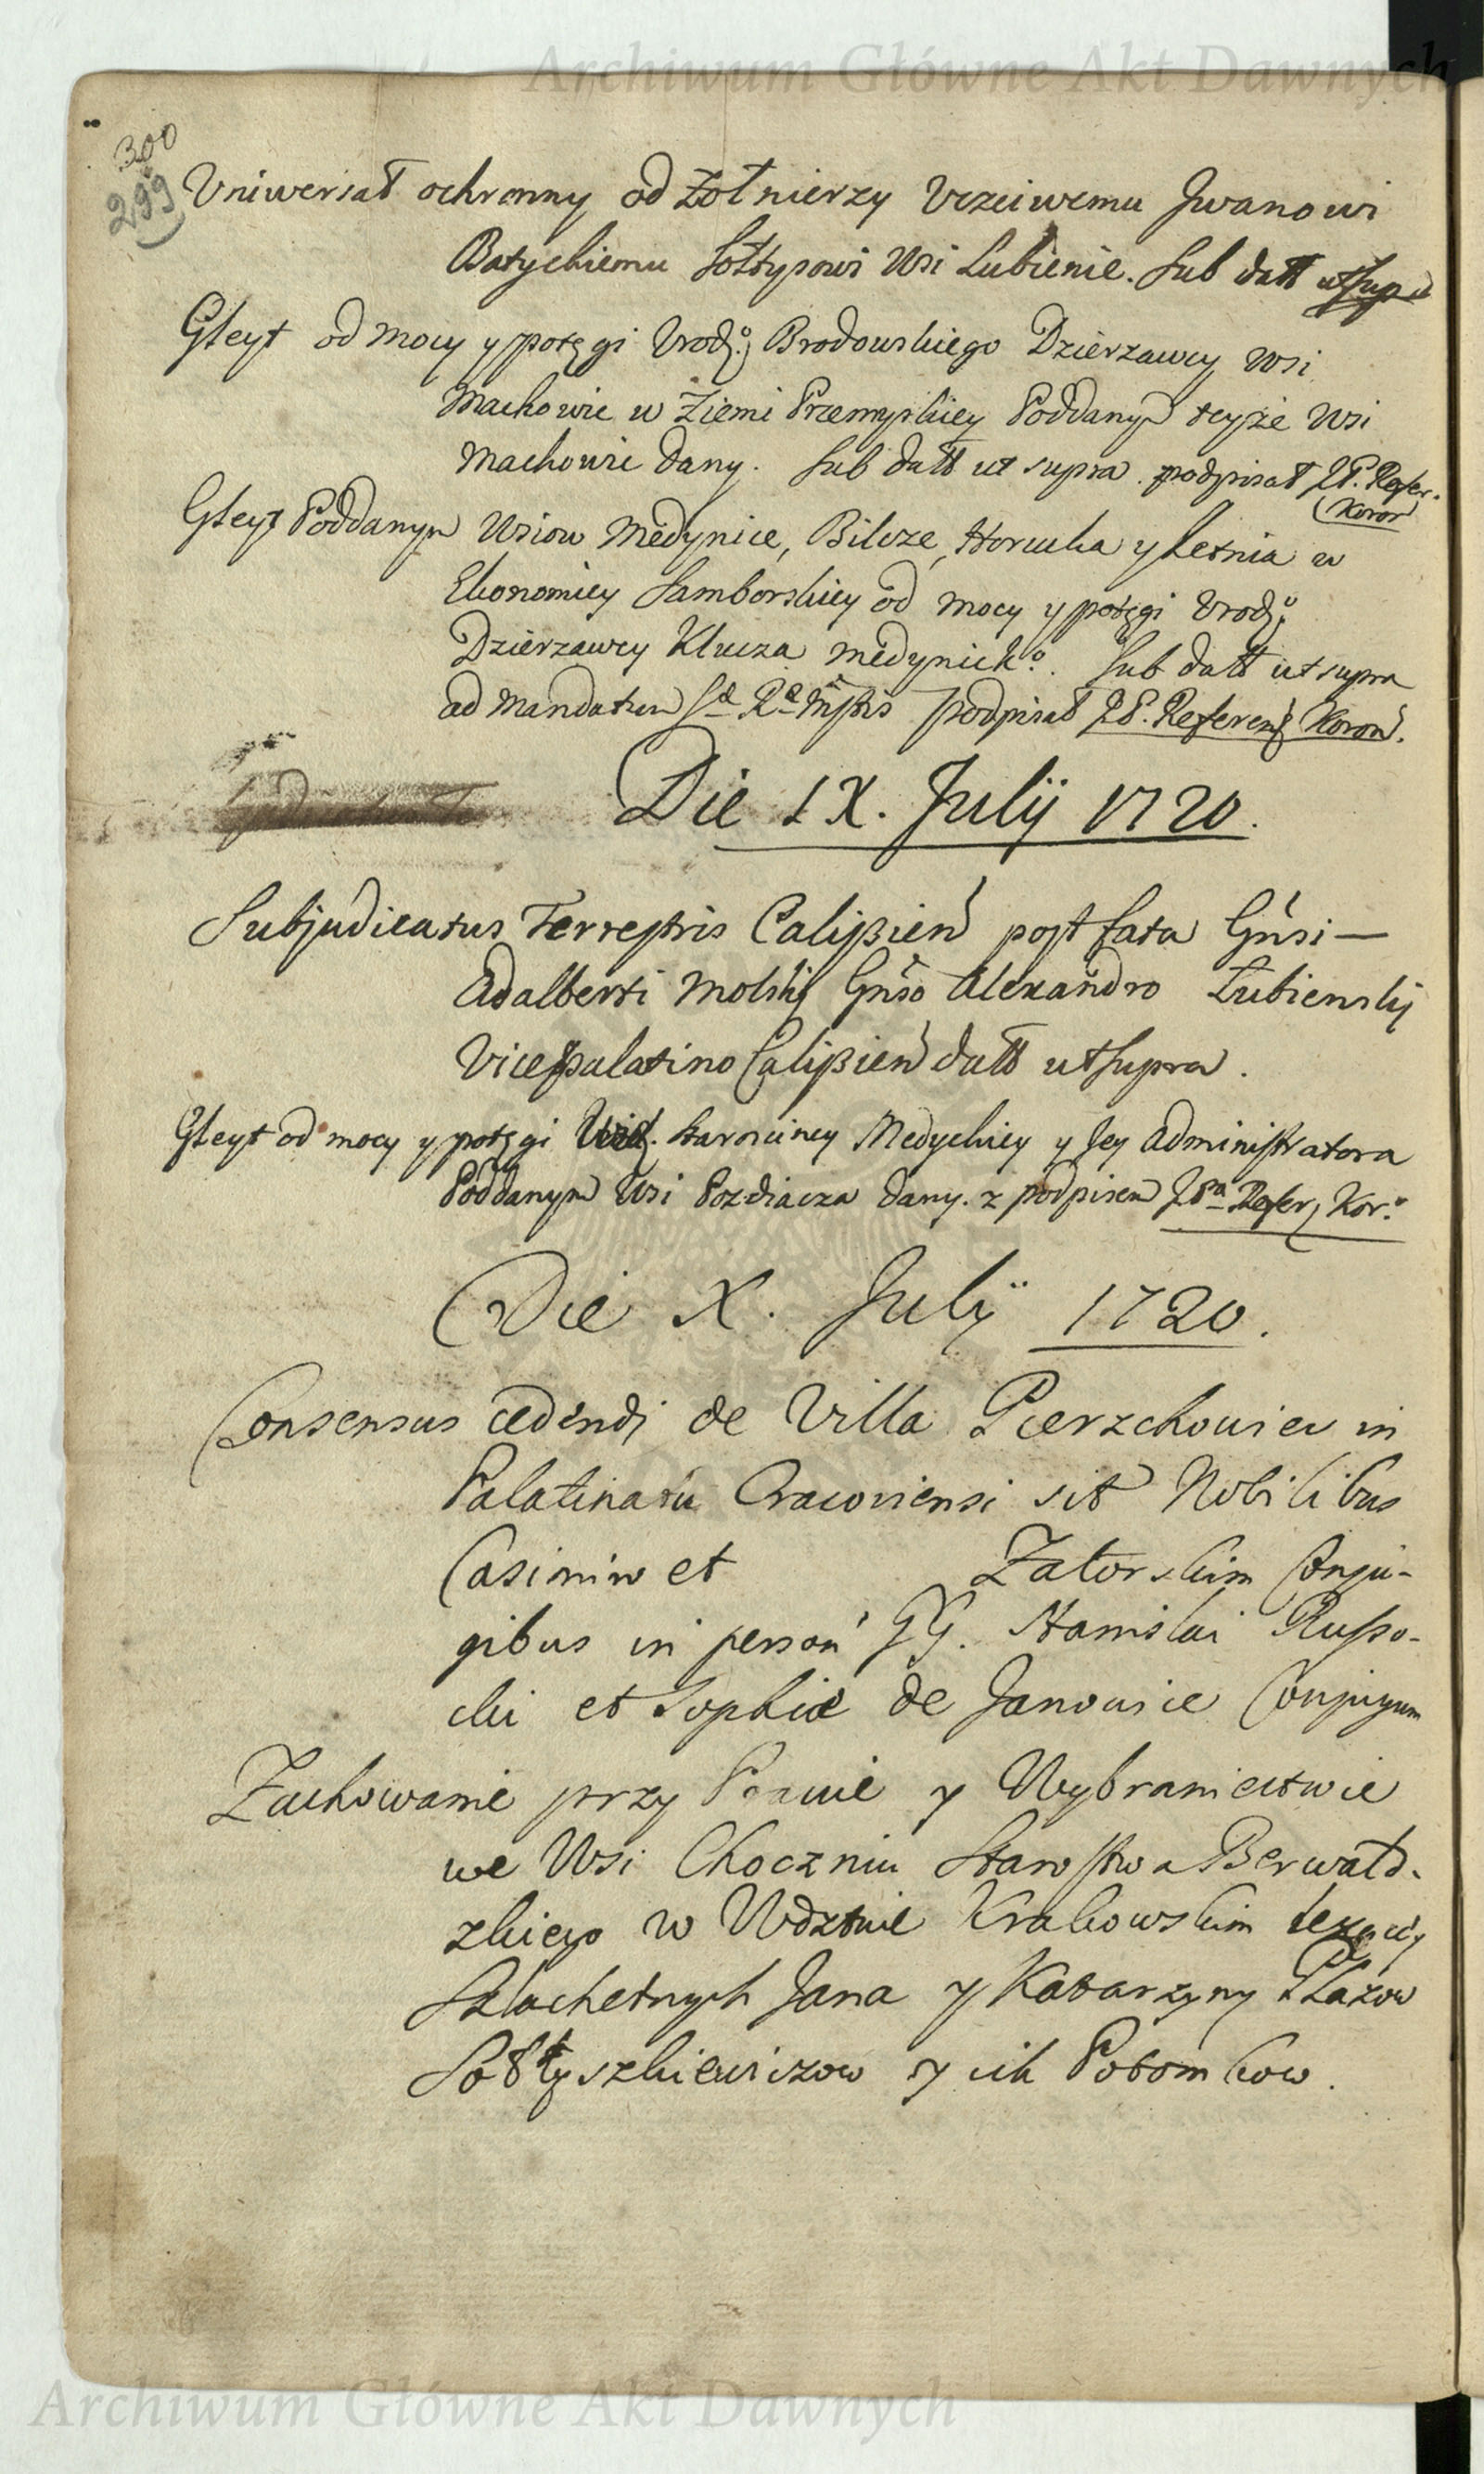 Archiwum Główne Akt Dawnych
300
299
Uniwersał ochronny od Zołnierzy Uczciwemu Jwanowi
Batyckiemu Sołtysowi Wsi Lubienie. Sub datt utsupra
Gleyt od mocy y potęgi Urodz.º Brodowskiego Dzierzawcy Wsi
Machowie w Ziemi Przemyskiey Poddanym teyże Wsi
Machowie dany. Sub datt ut supra. podpisał JP. Refer.
Koron
Gleyt Poddanym Wsiow Medynice, Bilcze, Horucka y Letnia w
Ekonomiey Samborskiey od mocy y potęgi Urodz.º
Dzierzawcy Klucza Medynick.º Sub datt ut supra
ad Mandatum podpisał JP. Referend Koron.
Die IX. Julij 1720.
Subjudicatus Terrestris Calissien post fata Gnsi —
Adalberti Molskij Gnso Alexandro Łubienskij
Vicepalatino Calissien datt utsupra.
Gleyt od mocy y potęgi Starosciney Medyckiey y Jey Administratora
Poddanym Wsi Pozdiacza dany. z podpisem JPa Refer, Kor.º
Die X. Julij 1720.
Consensus cedendi de Villa Pierzchowiec in
Palatinatu Cracoviensi sit Nobilibus
Casimiro et Zatorskim Conju-
gibus in person GG. Stanislai Russo-
cki et Sophiæ de Janowice Conjugum
Zachowanie przy Prawie y Wybraniectwie
we Wsi Choczniu Starostwa Berwałd-
zkiego w Wdztwie Krakowskim lezącey
Szlachetnych Jana y Katarzyny Płazow
Sołtyszkiewiczow y ich Potomkow.
Archiwum Główne Akt Dawnych